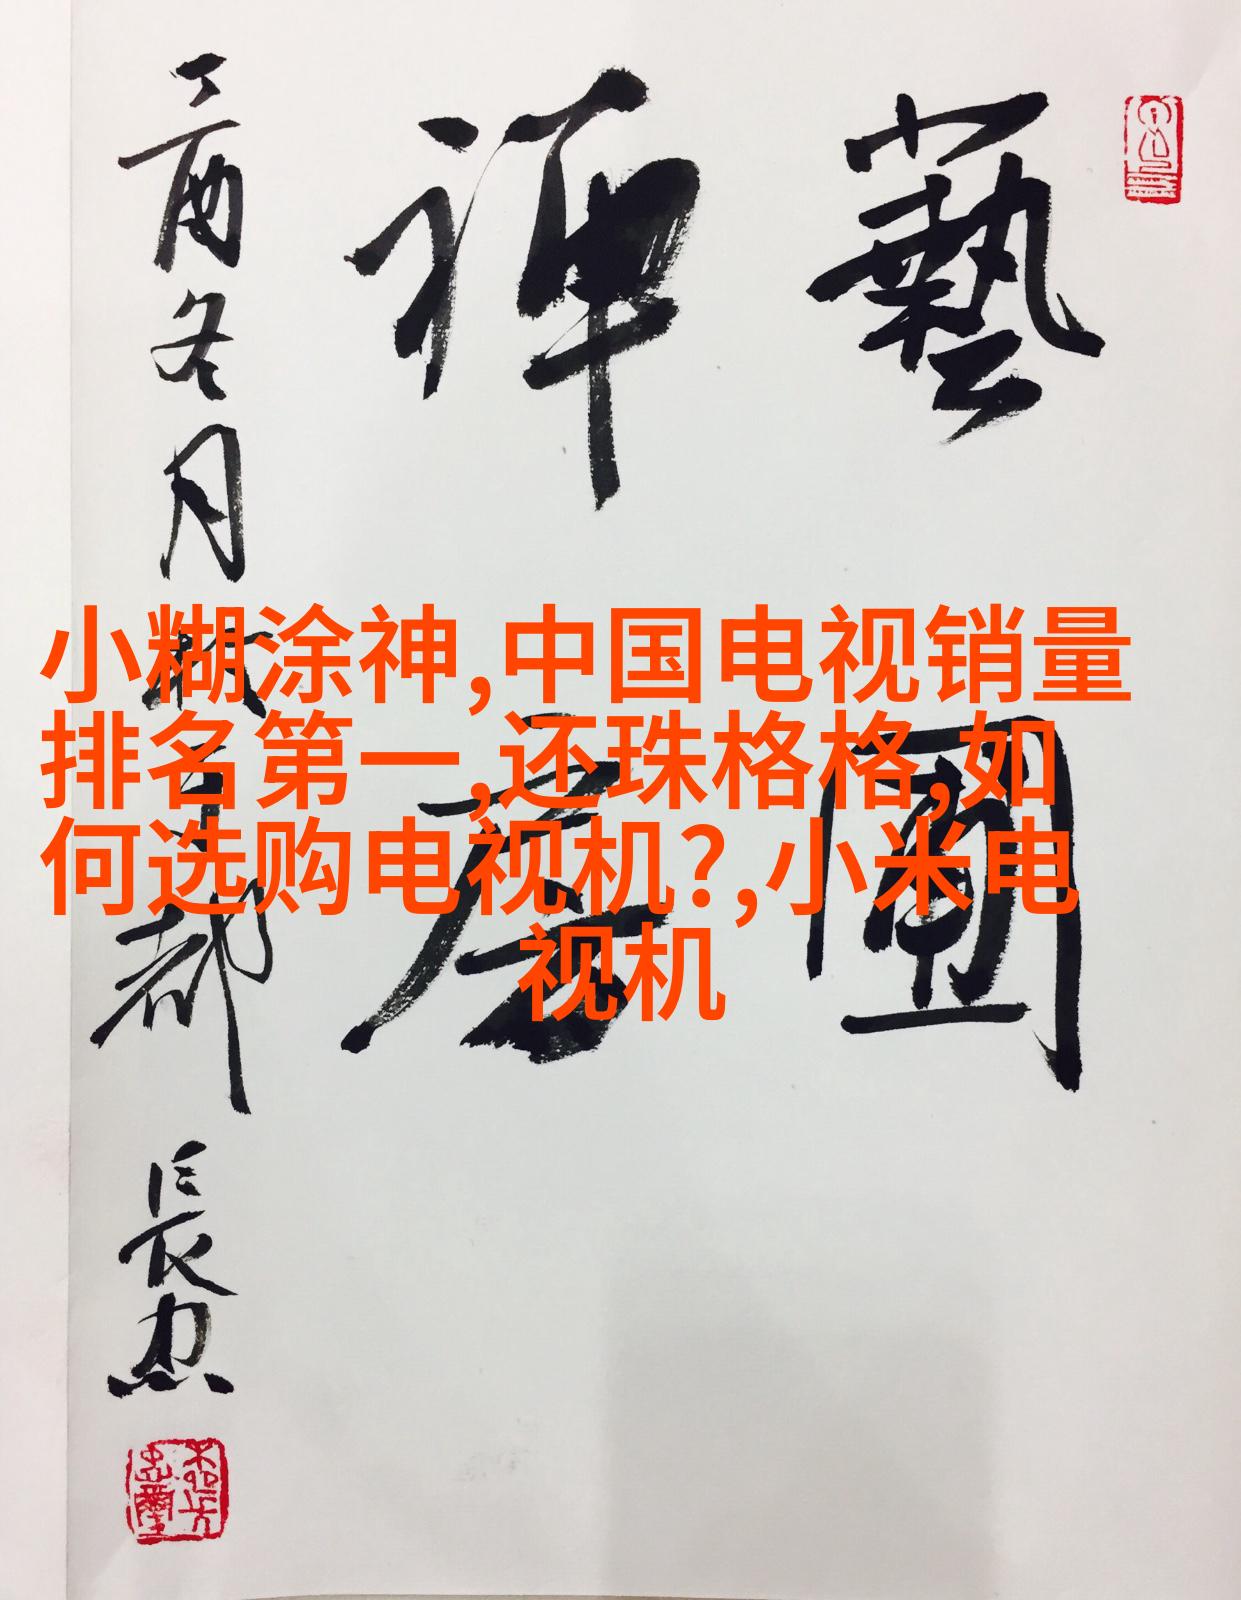 藝圃
禅房
丁酉冬月
於京都
長忠
小糊涂神,中国电视销量
排名第一,还珠格格,如
何选购电视机?,小米电
视机